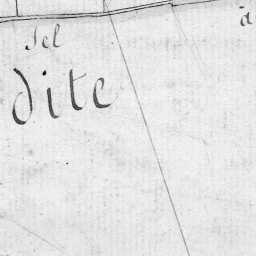 Sel
à
dite